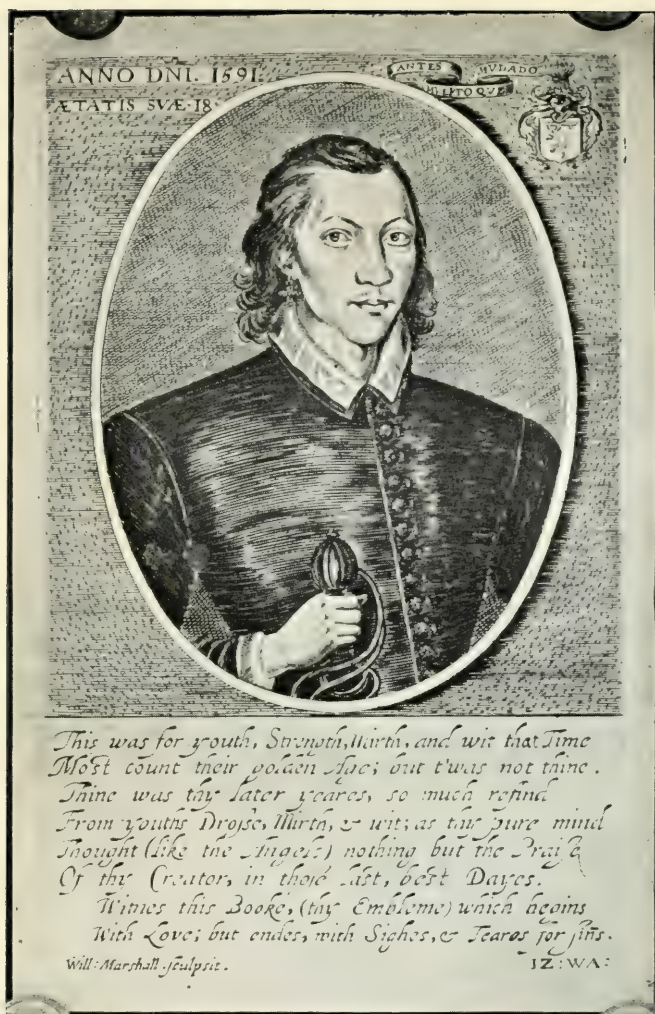 ANNO DNI. 1591.
ÆTATIS SVÆ. 18
ANTES MVDADO
QVE
This was for youth, Strength, Mirth, and wit that Time
Most count their golden Age; but t'was not thine.
Thine was thy later yeares, so much refind
From youths Drosse, Mirth, & wit; as thy pure mind
Thought (like the Angels) nothing but the Praise
Of thy Creator, in those last, best Dayes.
Witnes this Booke, (thy Embleme) which begins
With Love; but endes, with Sighes, & Teares for sins.
Will: Marshall sculpsit.
IZ: WA: